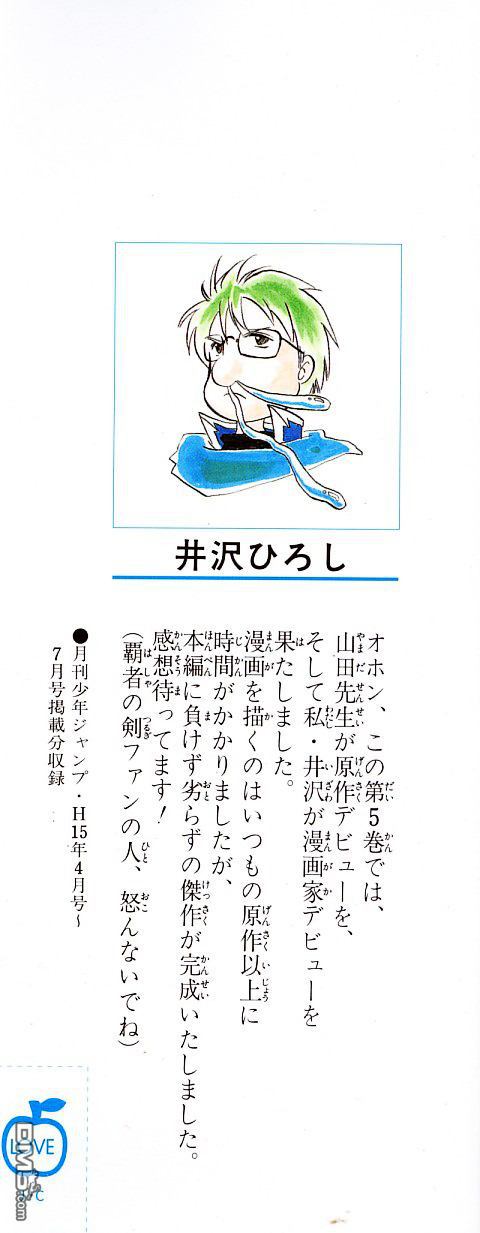 井沢ひろし
オホン、この第5巻では、
山田先生が原作デビューを、
そして私・井沢が漫画家デビューを
果たしました。
漫画を描くのはいつもの原作以上に
時間がかかりましたが、
本編に負けず劣らずの傑作が完成いたしました。
感想待ってます!
(覇者の剣ファンの人、怒んないでね)
●月刊少年ジャンプ・H15年4月号~
7月号掲載分収録
LOVE
DM5
.com